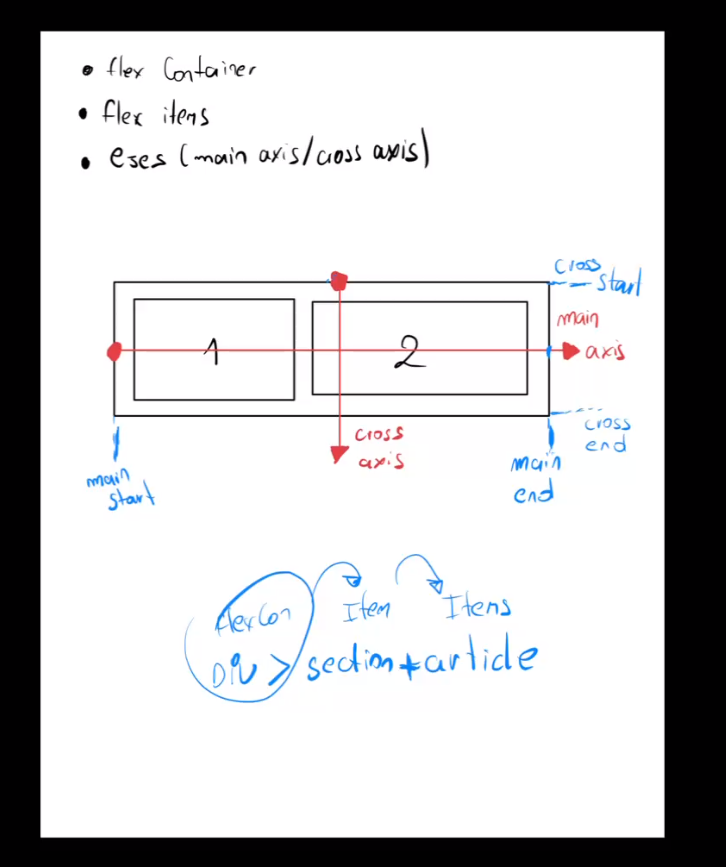 • flex Container
• flex items
• eses (main axis/cross axis)
cross
start
main
axis
1
2
cross
axis
cross
end
main
start
main
end
flexCon
Item
Itens
DiV > section + article